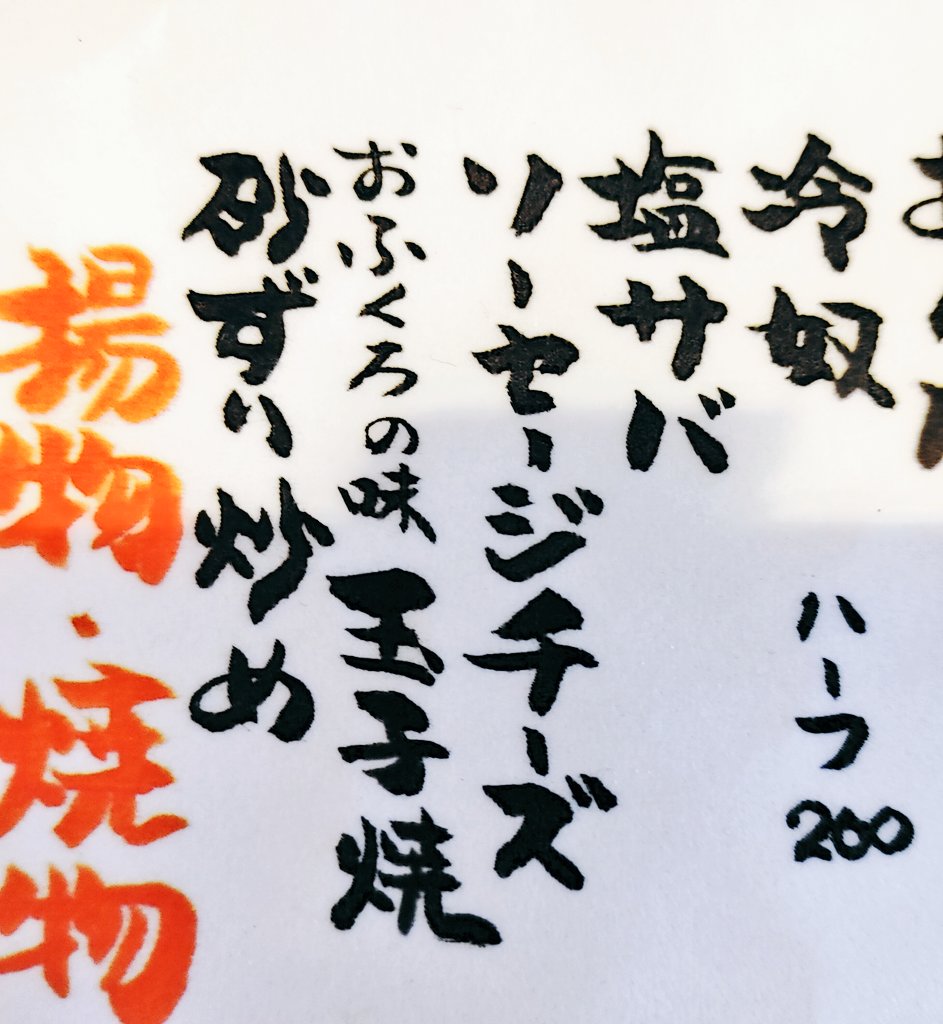 冷奴 ハーフ200
塩サバ
ソーセージチーズ
おふくろの味 玉子焼
砂ずり炒め
揚物・焼物